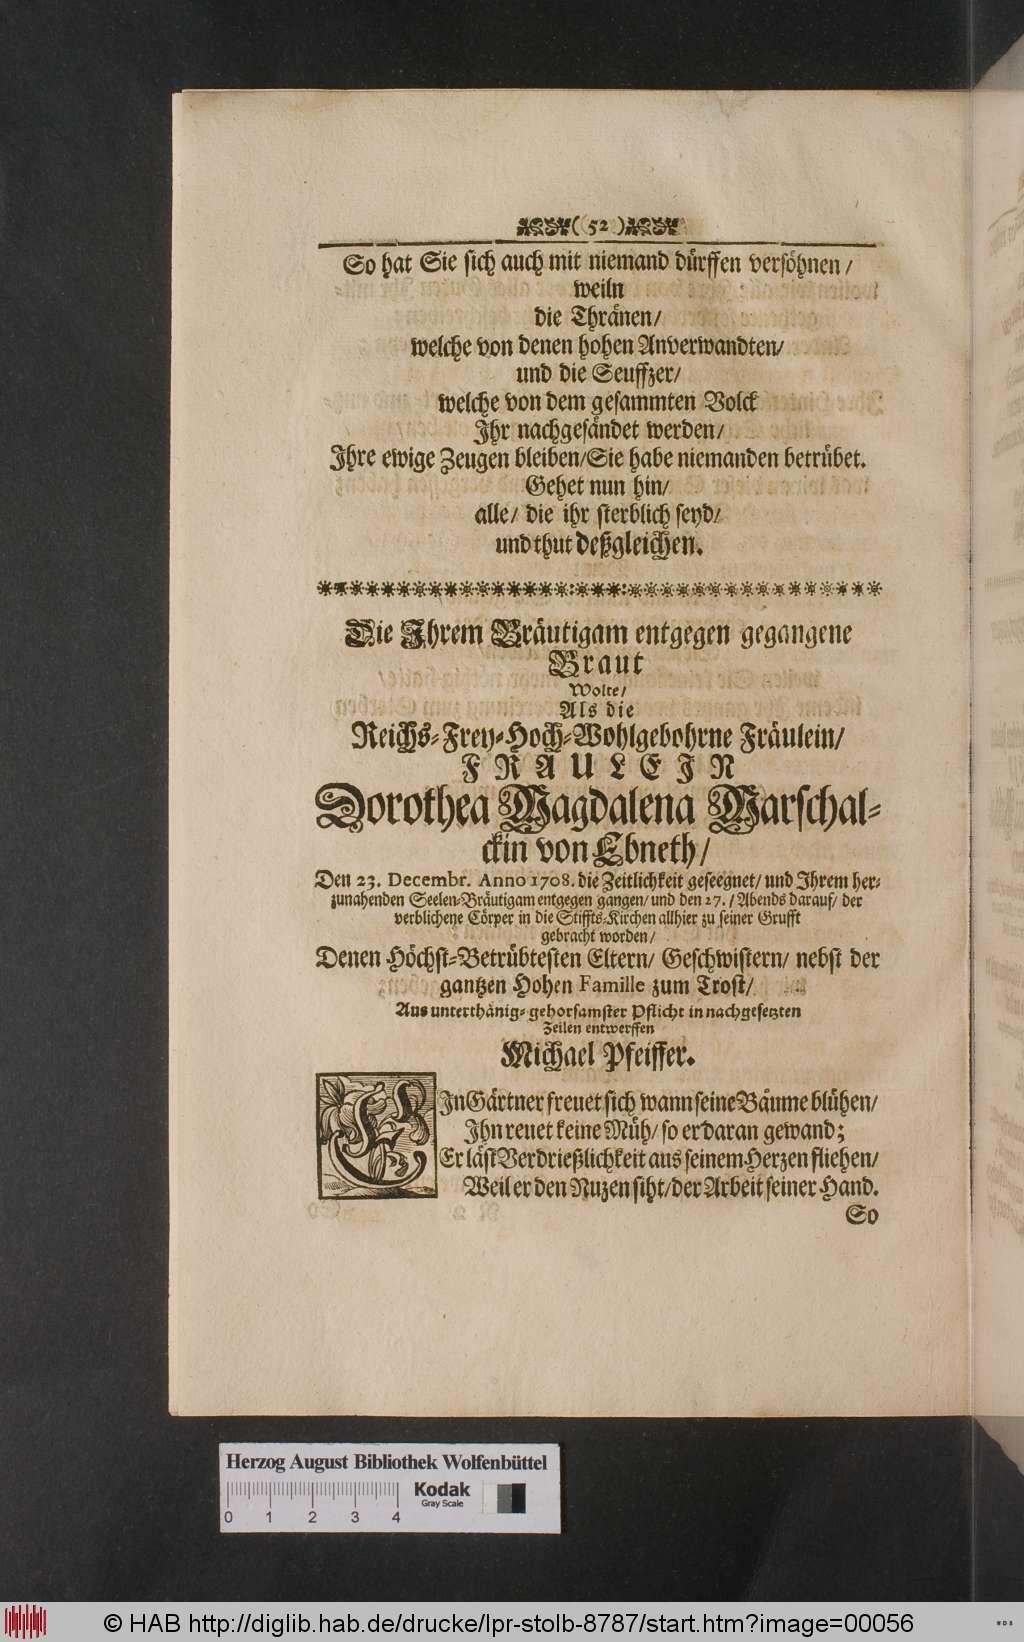 ( 52 )
So hat Sie sich auch mit niemand dürffen versöhnen /
weiln
die Thränen/
welche von denen hohen Anverwandten/
und die Seuffzer/
welche von dem gesammten Volck
Ihr nachgesändet werden/
Ihre ewige Zeugen bleiben/Sie habe niemanden betrübet.
Gehet nun hin/
alle/ die ihr sterblich seyd/
und thut deßgleichen.
Die Ihrem Bräutigam entgegen gegangene
Braut
Wolte/
Als die
Reichs-Frey-Hoch-Wohlgebohrne Fräulein/
FRAULEIN
Dorothea Magdalena Marschal-
ckin von Ebneth/
Den 23. Decembr. Anno 1708. die Zeitlichkeit geseegnet/ und Ihrem her-
zunahenden Seelen-Bräutigam entgegen gangen/ und den 27./ Abends darauf/ der
verblichene Cörper in die Stiffts-Kirchen allhier zu seiner Grufft
gebracht worden/
Denen Höchst-Betrübtesten Eltern/ Geschwistern/ nebst der
gantzen Hohen Famille zum Trost/
Aus unterthänig-gehorsamster Pflicht in nachgesetzten
Zeilen entwerffen
Michael Pfeiffer.
EIn Gärtner freuet sich wann seine Bäume blühen/
Ihn reuet keine Müh/ so er daran gewand;
Er läst Verdrießlichkeit aus seinem Herzen fliehen/
Weil er den Nuzen siht/ der Arbeit seiner Hand.
So
Herzog August Bibliothek Wolfenbüttel
Kodak
Gray Scale
0 1 2 3 4
© HAB http://diglib.hab.de/drucke/lpr-stolb-8787/start.htm?image=00056